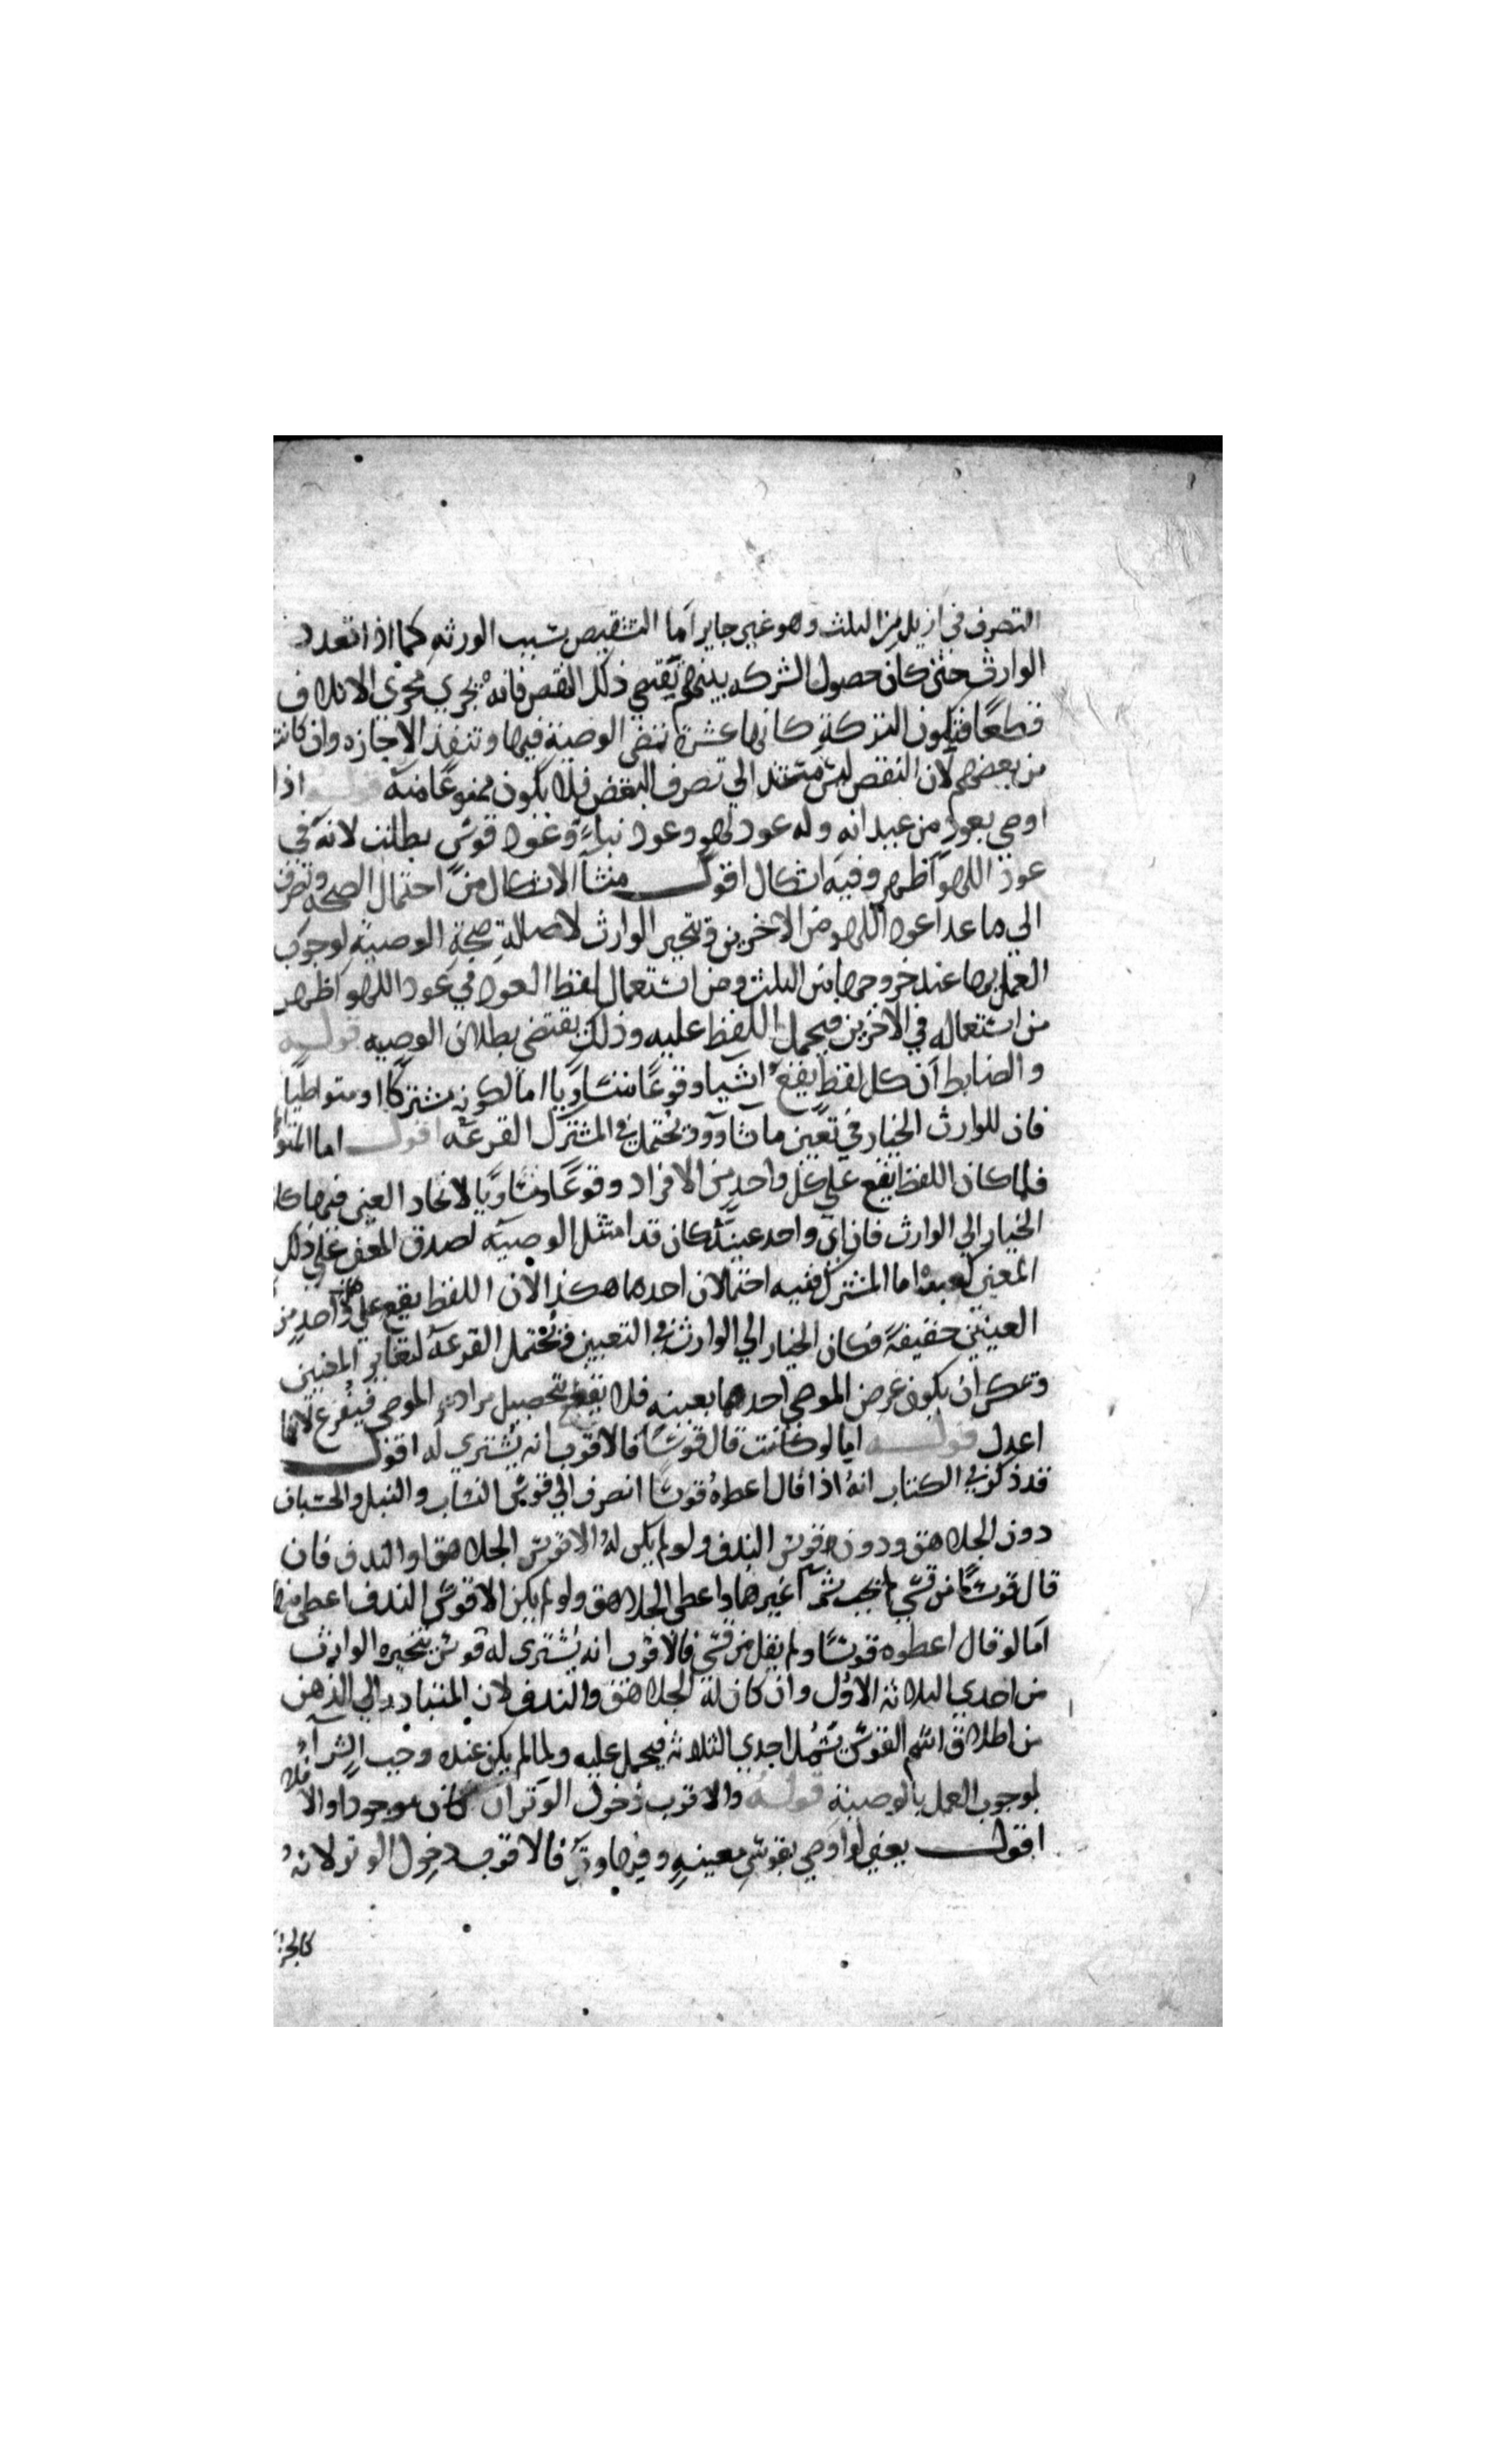 التصرف في ازيد من الثلث وهو غير جايز اما التنقيص بسبب الورثه كما اذا تعدد
الوارث حتى كان حصول الشركه بينهم يقتضي ذلك النقص فانه يجري مجرى الاتلاف
قطعًا فتكون التركة كانها عشرة تنفى الوصية فيها وتنفذ الاجازه وان كانت
من بعضهم لان النقص ليس مستند الي تصرف البعض فلا يكون ممنوعًا منه قوله اذا
اوصي بعود من عيدانه وله عود لهو وعود نبل وعود قوس بطلت لانه في
عود اللهو اظهر وفيه اشكال اقول منشأ الاشكال من احتمال الصحه وتصرف
الي ما عدا عود اللهو من الاخرين ويتخير الوارث لاصالة صحة الوصية لوجوب
العمل بها عند خروجها من الثلث ومن استعمال لفظ العود في عود اللهو اظهر
من استعماله في الاخرين فيحمل اللفظ عليه وذلك يقتضي بطلان الوصيه قوله
والضابط ان كل لفظ يقع اشيا وقوعًا متساويا اما لكونه مشتركا او متواطيًا
فان للوارث الخيار في تعين ما شآ وقد يحتمل في المشترك القرعه اقول اما المتو
فلما كان اللفظ يقع علي كل واحد من الافراد وقوعًا متساويًا لاتحاد المعني فيها كا
الخيار الي الوارث فان اي واحد عينه كان قد امتثل الوصيه لصدق اللفظ علي ذلك
المعني لعبده اما المشترك ففيه احتمالان احدهما هكذا لان اللفظ يقع علي واحد من
المعنيين حقيقةً فكان الخيار الي الوارث في التعيين ويحتمل القرعه لتغاير المعنيين
وتمكن ان يكون غرض الموصي احدهما بعينه فلا يقطع بتحصيل مراد الموصي فيقرع لانها
اعدل قوله اما لو كانت قال قوسًا فالاقرب انه يشتري له اقول
قد ذكر في الكتاب انه اذا قال اعطوه قوسًا انصرف الي قوس النشاب والنبل والحسبان
دون الجلاهق ودون قوس الندف ولو لم يكن له الا قوس الجلاهق او الندف فان
قال قوسًا من قسي لم يجب شرآ غيرهما واعطي الجلاهق ولو لم يكن الا قوس الندف اعطي منها
اما لو قال اعطوه قوسًا ولم يقل من قسي فالاقرب انه يشترى له قوس يتخيره الوارث
من احدي الثلاثه الاول وان كان له الجلاهق والندف لان المتبادر الي الذهن
من اطلاق اسم القوس يشمل احدي الثلاثه فيحمل عليه ولما لم يكن عنده وجب الشرآء
لوجوب العمل بالوصية قوله والاقرب دخول الوتر ان كان موجودا والا فلا
اقول يعني لو اوصي بقوس معينه وفيها وتر فالاقرب دخول الوتر لانه
كالجز